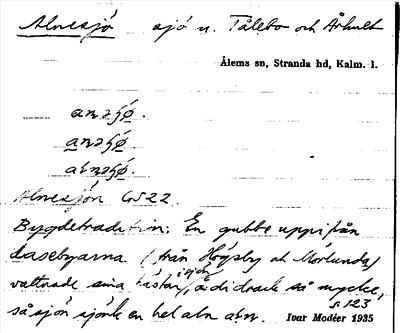 Alnesjö sjö n. Tålebo och Århult
Ålems sn, Stranda hd, Kalm. l.
Alnesjön GS 22
Bygdetradition: En gubbe uppifrån
Lasebyarna (från Högsby och Mörlunda)
vattnade sina hästar i sjön, å di drack så mycke,
s. 123
så sjön sjönk en hel aln
Ivar Modéer 1935